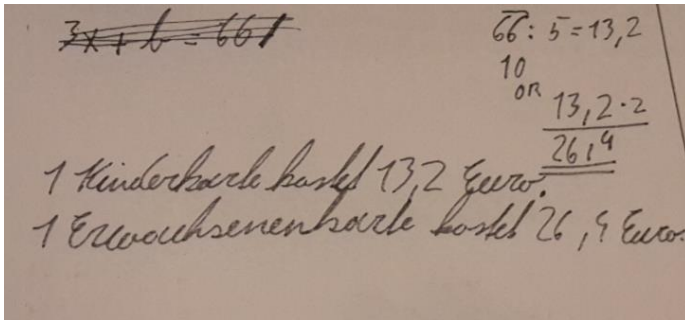 3x + b = 66
66 : 5 = 13,2
10
OR
13,2 · 2
26,4
1 Kinderkarte kostet 13,2 Euro.
1 Erwachsenenkarte kostet 26,4 Euro.